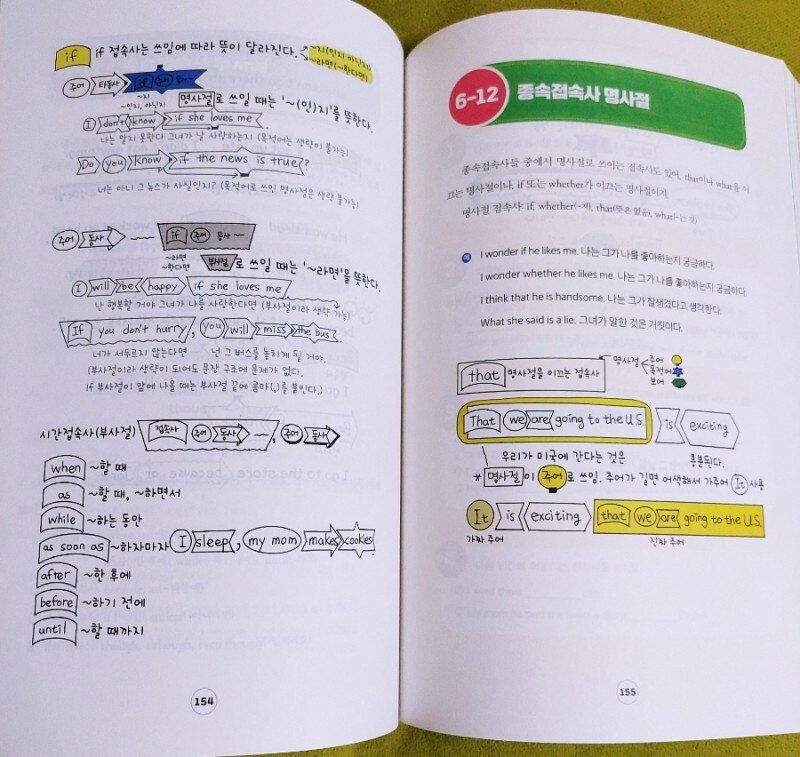 if if 접속사는 쓰임에 따라 뜻이 달라진다. ~지(인지 아닌지)
~라면(~한다면)
주어 타동사 if 주어 동사~
~지
~인지, 아닌지 명사절로 쓰일 때는 '~(인)지'를 뜻한다.
I don't know if she loves me.
나는 알지 못한다 그녀가 날 사랑하는지 (목적어는 생략이 불가능)
Do you know if the news is true?
너는 아니 그 뉴스가 사실인지? (목적어로 쓰인 명사절은 생략 불가능)
주어 동사 ~~ if 주어 동사 ~~
~라면
~한다면 부사절로 쓰일 때는 '~라면'을 뜻한다.
I will be happy if she loves me.
난 행복할 거야 그녀가 나를 사랑한다면 (부사절이라 생략 가능)
If you don't hurry, you will miss the bus.
너가 서두르지 않는다면 넌 그 버스를 놓치게 될 거야.
(부사절이라 생략이 되어도 문장 구조에 문제가 없다.
if 부사절이 앞에 나올 때는 부사절 끝에 콤마(,)를 붙인다.)
시간접속사(부사절) 접속사 주어 동사 ~~, 주어 동사
when ~할 때
as ~할 때, ~하면서
while ~하는 동안
as soon as ~하자마자 I sleep, my mom makes cookies.
after ~한 후에
before ~하기 전에
until ~할 때까지
154
6-12 종속접속사 명사절
종속접속사들 중에서 명사절로 쓰이는 접속사도 있어. that이나 what을 이
끄는 명사절이나, if 또는 whether가 이끄는 명사절이지.
명사절 접속사: if, whether(~지), that(뜻은 없음), what(~는 것)
예 I wonder if he likes me. 나는 그가 나를 좋아하는지 궁금하다.
I wonder whether he likes me. 나는 그가 나를 좋아하는지 궁금하다.
I think that he is handsome. 나는 그가 잘생겼다고 생각한다.
What she said is a lie. 그녀가 말한 것은 거짓이다.
that 명사절을 이끄는 접속사 명사절 주어
목적어
보어
That we are going to the U.S. is exciting
우리가 미국에 간다는 것은 흥분된다.
* 명사절이 주어로 쓰임. 주어가 길면 어색해서 가주어 It 사용
It is exciting that we are going to the U.S.
가짜 주어 진짜 주어
155